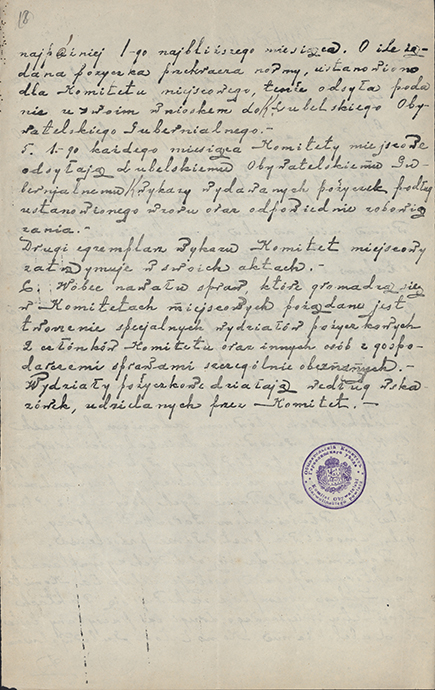 18
najpóźniej 1-go najbliższego miesiąca. O ile żą-
dana pożyczka przekracza normy, ustanowiono
dla Komitetu miejscowego, tenże odsyła poda
nie z swoim wnioskem do Lubelskiego Oby-
watelskiego Gubernialnego.-
5. 1-go każdego miesiąca Komitety miejscowe
odsyłają Lubelskiemu Obywatelskiemu Gu-
bernjalnemu wykazy wydawanych pożyczek podług
ustanowionego wzoru oraz odpowiednie zobowią
zania.-
Drugi egzemplarz wykazu Komitet miejscowy
zatrzymuje w swoich aktach.-
6. Wobec nawału spraw, które gromadzą się
w Komitetach miejscowych pożądanem jest
tworzenie specjalnych wydziałów pożyczkowych
z członków Komitetu oraz innych osób z gospo-
darczemi sprawami szczególnie obeznanych.-
Wydziały pożyczkowe działają według wska-
zówek, udzielanych przez Komitet.-